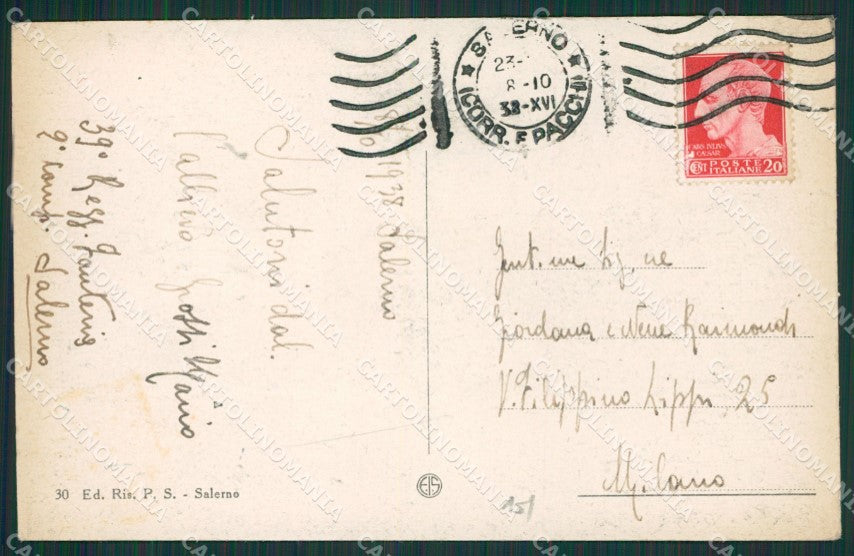 SALERNO
23-
8-10
38-XVI
(CORR. E PACCHI)
CAIVS IVLIVS
CAESAR
CENT POSTE ITALIANE 20
1938 Salerno
Salutoni dal
l'allievo Grossi Mario
39° Regg. Fanteria
9° comp. Salerno
Gent.me Sig.ne
Giordana e Nene Raimondi
V. Filippino Lippi, 25
Milano
30 Ed. Ris. P. S. - Salerno
15/
CARTOLINOMANIA